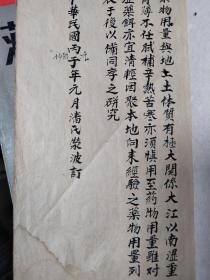 藥物用量與地土土体質有極大關係大江以南溼重
質薄不任拭補辛熱苦寒亦須慎用至药物用量雖对
症藥餌亦宜清輕因聚本地向來經驗之藥物用量列
表于後以備同学之研究
中華民國丙子年元月潘氏榮波訂
1936